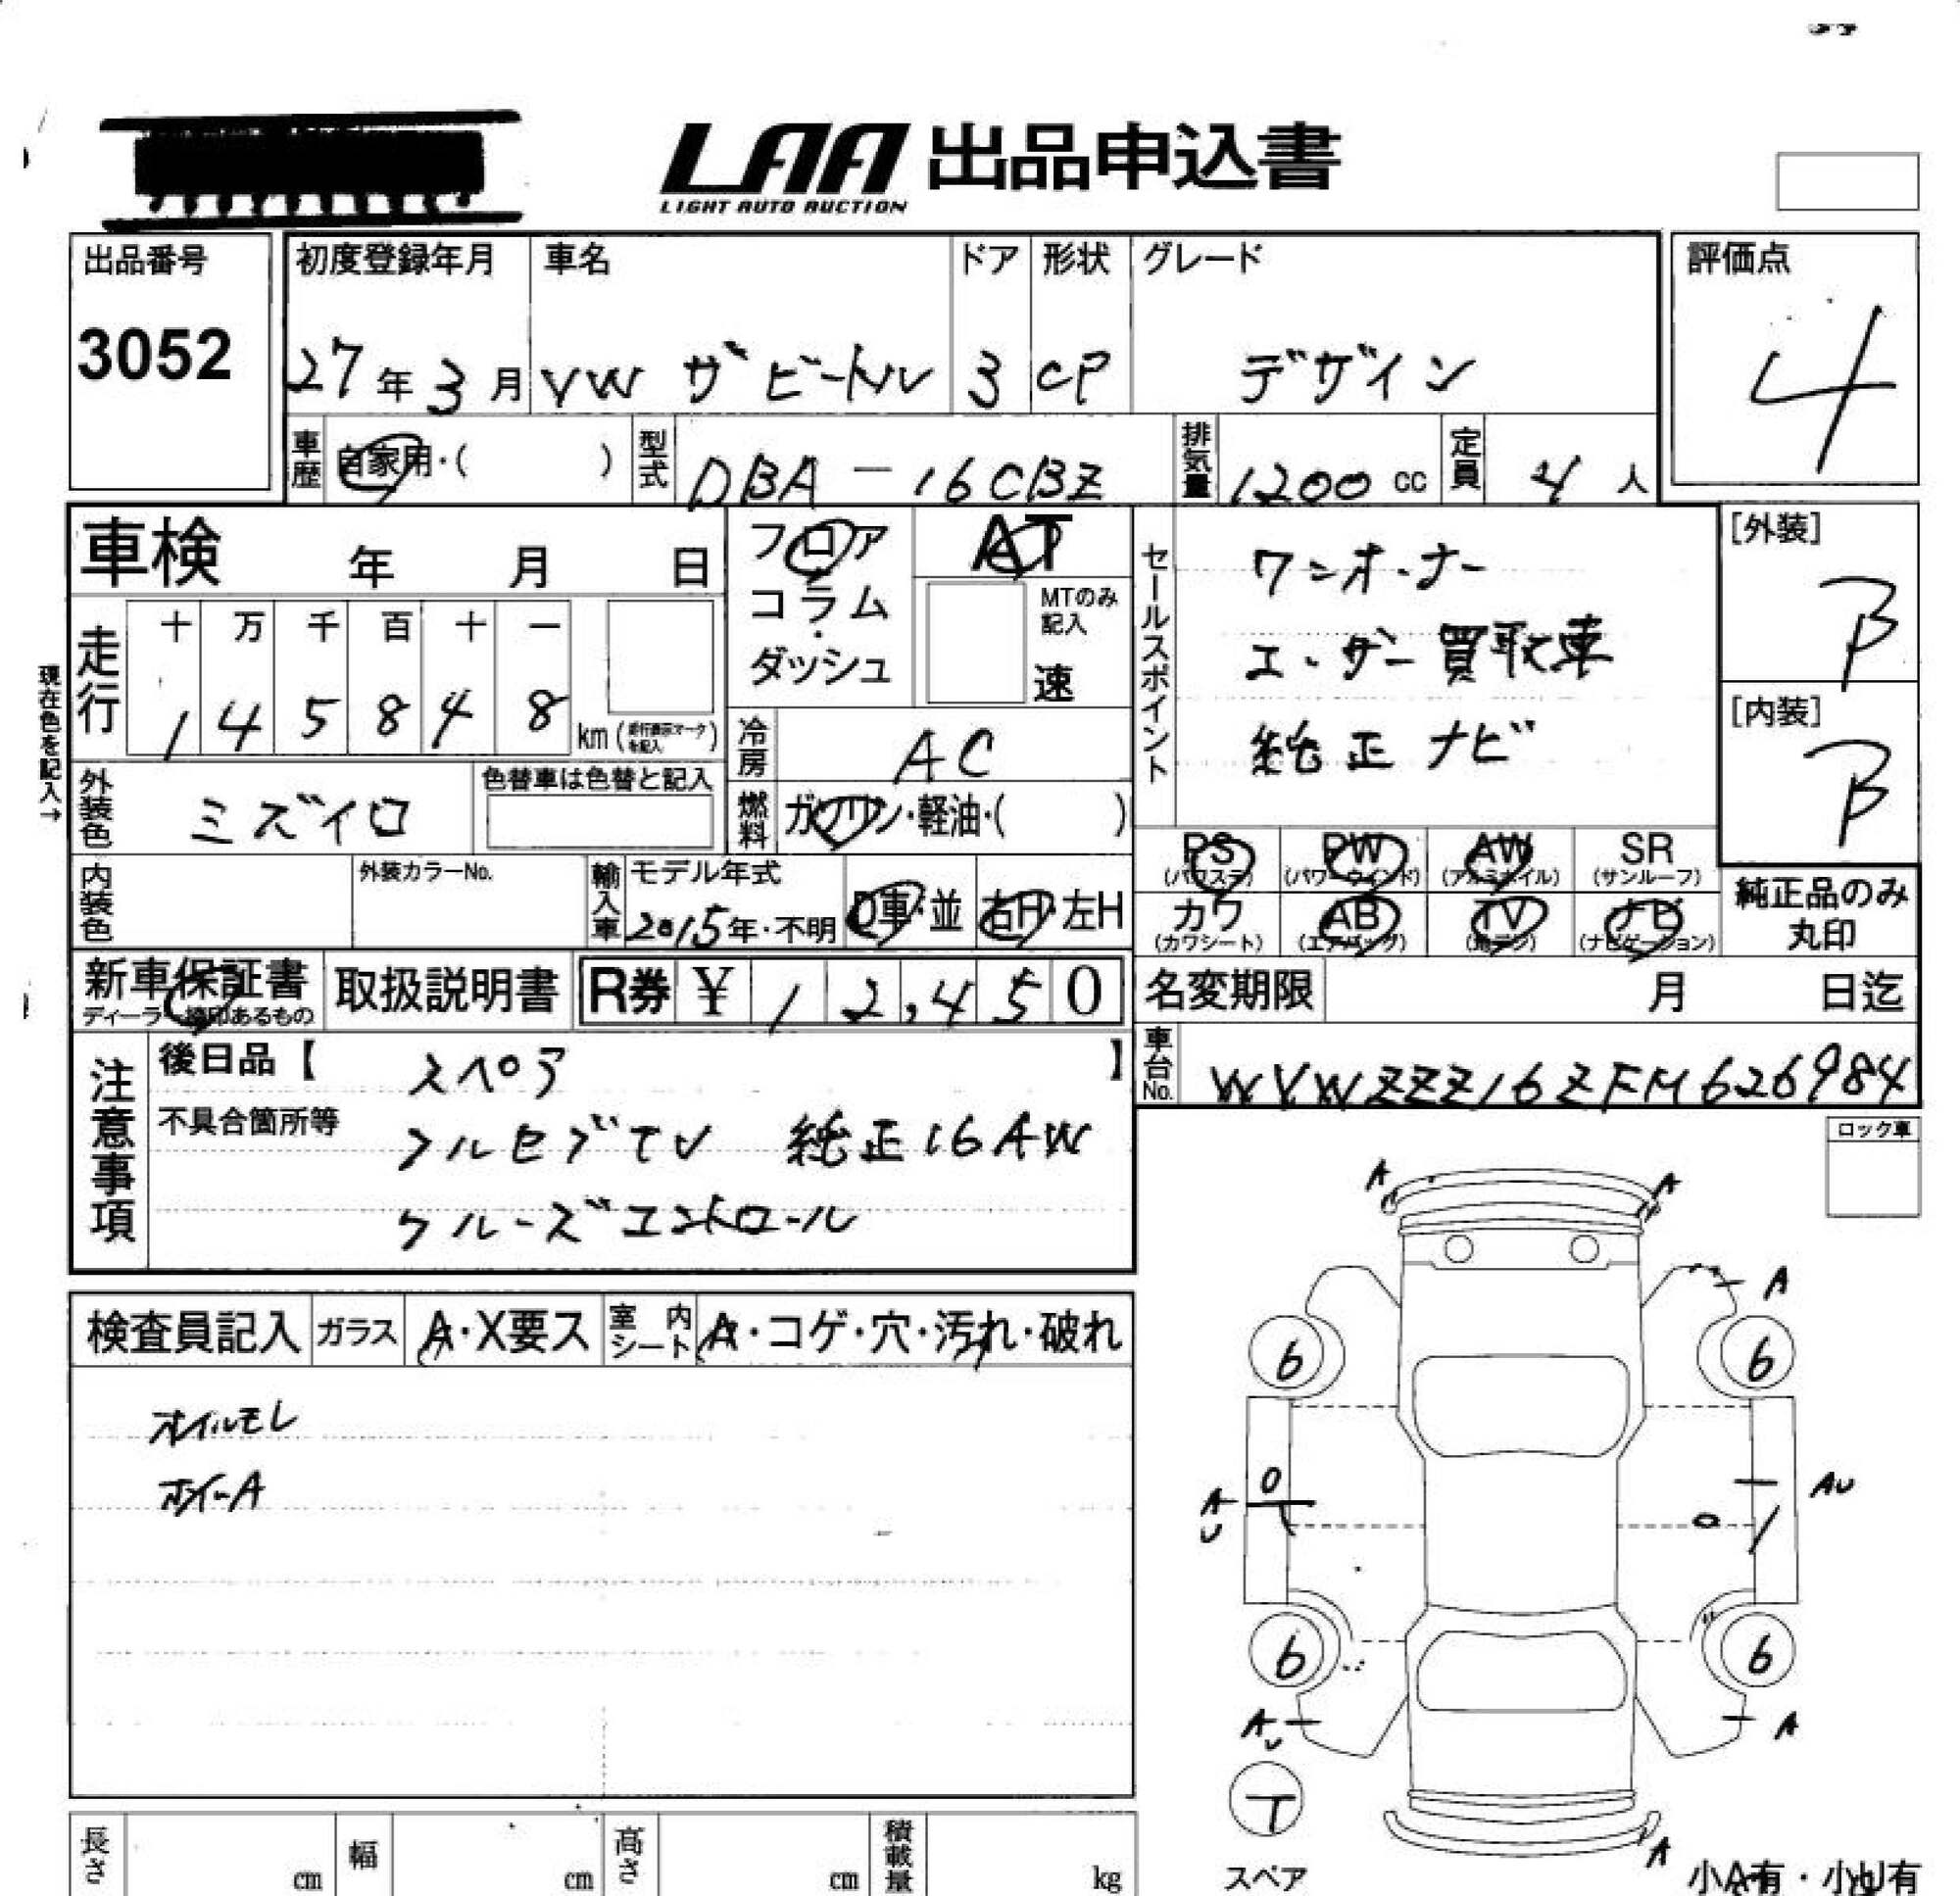 LAA 出品申込書
LIGHT AUTO AUCTION
出品番号
3052
初度登録年月 車名 ドア 形状 グレード
27年3月 VW ザビートル 3 CP デザイン
評価点
4
車歴 自家用・( ) 型式 DBA-16CBZ 排気量 1200 cc 定員 4 人
車検 年 月 日
フロア
コラム
・
ダッシュ
AT
MTのみ
記入
速
セールスポイント
ワンオーナー
ユーザー買取車
純正ナビ
[外装]
B
[内装]
B
現在色を記入→
走行 十 万 千 百 十 一
1 4 5 8 4 8 km (走行表示マークを記入)
冷房 AC
燃料 ガソリン・軽油・( )
外装色 ミズイロ
色替車は色替と記入
内装色
外装カラーNo.
輸入車 モデル年式
2015年・不明 D車・並 右H・左H
PS PW AW SR
(パワステ) (パワーウインド) (アルミホイル) (サンルーフ)
カワ AB TV ナビ
(カワシート) (エアバッグ) (地デジ) (ナビゲーション)
純正品のみ
丸印
新車保証書 取扱説明書 R券 ¥ 12,450
名変期限 月 日迄
車台No. WVWZZZ16ZFM626984
注意事項
後日品【 スペア 】
不具合箇所等
フルセグTV 純正16AW
クルーズコントロール
ロック車
検査員記入 ガラス A・X要ス 室内シート A・コゲ・穴・汚れ・破れ
オイルモレ
ホイールA
A A
A
6 6
0
AU AU
0
6 6
AU A
T
スペア
A
小A有・小U有
長さ cm 幅 cm 高さ cm 積載量 kg